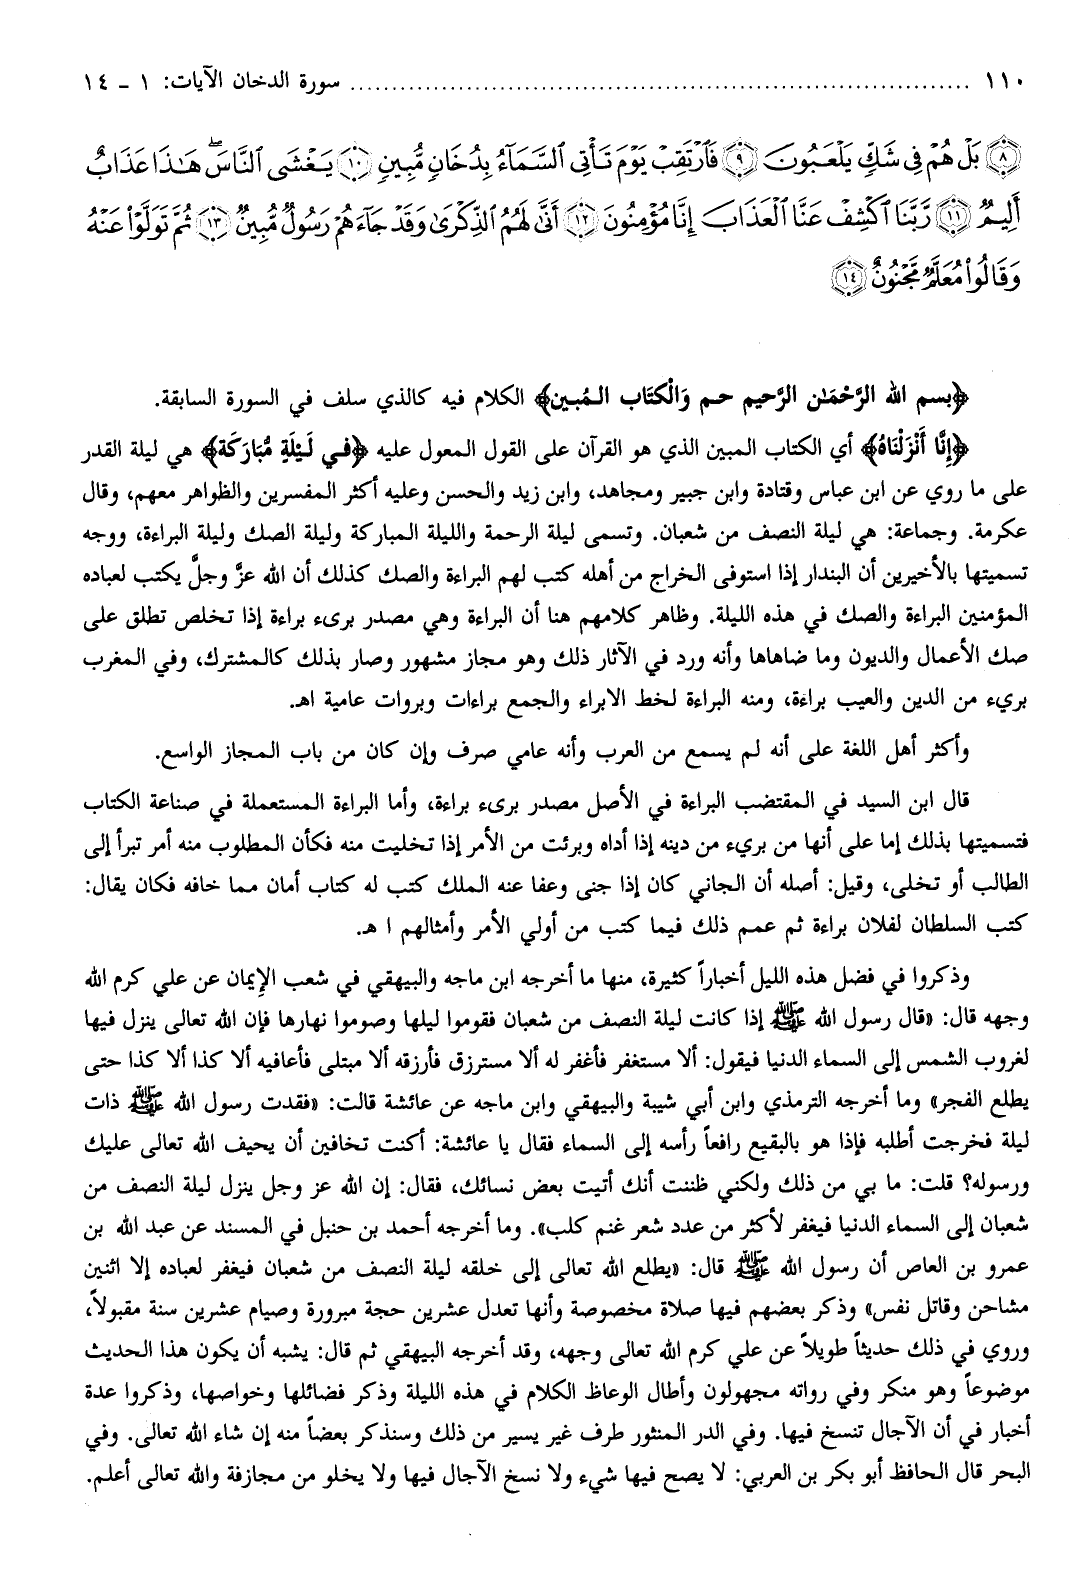 ١١٠ ........................................................................... سورة الدخان الآيات: ١ - ١٤
﴿٨﴾ بَلْ هُمْ فِي شَكٍّ يَلْعَبُونَ ﴿٩﴾ فَٱرْتَقِبْ يَوْمَ تَأْتِي ٱلسَّمَآءُ بِدُخَانٍ مُّبِينٍ ﴿١٠﴾ يَغْشَى ٱلنَّاسَ ۖ هَـٰذَا عَذَابٌ
أَلِيمٌ ﴿١١﴾ رَّبَّنَا ٱكْشِفْ عَنَّا ٱلْعَذَابَ إِنَّا مُؤْمِنُونَ ﴿١٢﴾ أَنَّىٰ لَهُمُ ٱلذِّكْرَىٰ وَقَدْ جَآءَهُمْ رَسُولٌ مُّبِينٌ ﴿١٣﴾ ثُمَّ تَوَلَّوْا۟ عَنْهُ
وَقَالُوا۟ مُعَلَّمٌ مَّجْنُونٌ ﴿١٤﴾
﴿بسم الله الرَّحْمَـٰن الرَّحيم حـم وَالْكتَاب الـمُبـين﴾ الكلام فيه كالذي سلف في السورة السابقة.
﴿إِنَّا أَنْزَلْنَاهُ﴾ أي الكتاب المبين الذي هو القرآن على القول المعول عليه ﴿فـي لَـيْلَةٍ مُّبَارَكَة﴾ هي ليلة القدر
على ما روي عن ابن عباس وقتادة وابن جبير ومجاهد، وابن زيد والحسن وعليه أكثر المفسرين والظواهر معهم، وقال
عكرمة. وجماعة: هي ليلة النصف من شعبان. وتسمى ليلة الرحمة والليلة المباركة وليلة الصك وليلة البراءة، ووجه
تسميتها بالأخيرين أن البندار إذا استوفى الخراج من أهله كتب لهم البراءة والصك كذلك أن الله عزَّ وجلَّ يكتب لعباده
المؤمنين البراءة والصك في هذه الليلة. وظاهر كلامهم هنا أن البراءة وهي مصدر برىء براءة إذا تخلص تطلق على
صك الأعمال والديون وما ضاهاها وأنه ورد في الآثار ذلك وهو مجاز مشهور وصار بذلك كالمشترك، وفي المغرب
بريء من الدين والعيب براءة، ومنه البراءة لخط الابراء والجمع براءات وبروات عامية اهـ.
وأكثر أهل اللغة على أنه لم يسمع من العرب وأنه عامي صرف وإن كان من باب المجاز الواسع.
قال ابن السيد في المقتضب البراءة في الأصل مصدر برىء براءة، وأما البراءة المستعملة في صناعة الكتاب
فتسميتها بذلك إما على أنها من بريء من دينه إذا أداه وبرئت من الأمر إذا تخليت منه فكأن المطلوب منه أمر تبرأ إلى
الطالب أو تخلى، وقيل: أصله أن الجاني كان إذا جنى وعفا عنه الملك كتب له كتاب أمان مما خافه فكان يقال:
كتب السلطان لفلان براءة ثم عمم ذلك فيما كتب من أولي الأمر وأمثالهم ا هـ.
وذكروا في فضل هذه الليل أخباراً كثيرة، منها ما أخرجه ابن ماجه والبيهقي في شعب الإيمان عن علي كرم الله
وجهه قال: «قال رسول الله ﷺ إذا كانت ليلة النصف من شعبان فقوموا ليلها وصوموا نهارها فإن الله تعالى ينزل فيها
لغروب الشمس إلى السماء الدنيا فيقول: ألا مستغفر فأغفر له ألا مسترزق فأرزقه ألا مبتلى فأعافيه ألا كذا ألا كذا حتى
يطلع الفجر» وما أخرجه الترمذي وابن أبي شيبة والبيهقي وابن ماجه عن عائشة قالت: «فقدت رسول الله ﷺ ذات
ليلة فخرجت أطلبه فإذا هو بالبقيع رافعاً رأسه إلى السماء فقال يا عائشة: أكنت تخافين أن يحيف الله تعالى عليك
ورسوله؟ قلت: ما بي من ذلك ولكني ظننت أنك أتيت بعض نسائك، فقال: إن الله عز وجل ينزل ليلة النصف من
شعبان إلى السماء الدنيا فيغفر لأكثر من عدد شعر غنم كلب». وما أخرجه أحمد بن حنبل في المسند عن عبد الله بن
عمرو بن العاص أن رسول الله ﷺ قال: «يطلع الله تعالى إلى خلقه ليلة النصف من شعبان فيغفر لعباده إلا اثنين
مشاحن وقاتل نفس» وذكر بعضهم فيها صلاة مخصوصة وأنها تعدل عشرين حجة مبرورة وصيام عشرين سنة مقبولاً،
وروي في ذلك حديثاً طويلاً عن علي كرم الله تعالى وجهه، وقد أخرجه البيهقي ثم قال: يشبه أن يكون هذا الحديث
موضوعاً وهو منكر وفي رواته مجهولون وأطال الوعاظ الكلام في هذه الليلة وذكر فضائلها وخواصها، وذكروا عدة
أخبار في أن الآجال تنسخ فيها. وفي الدر المنثور طرف غير يسير من ذلك وسنذكر بعضاً منه إن شاء الله تعالى. وفي
البحر قال الحافظ أبو بكر بن العربي: لا يصح فيها شيء ولا نسخ الآجال فيها ولا يخلو من مجازفة والله تعالى أعلم.